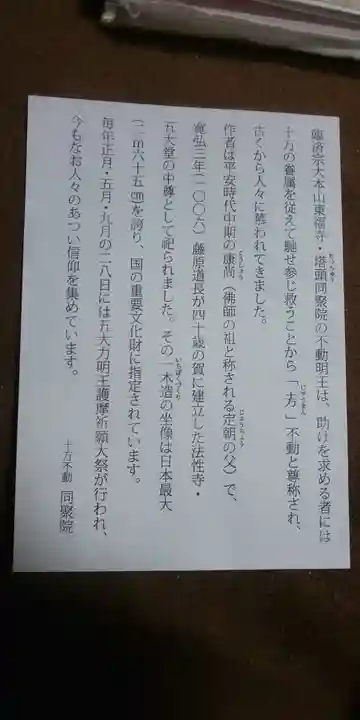 臨済宗大本山東福寺・塔頭同聚院の不動明王は、助けを求める者には
十万の眷属を従えて馳せ参じ救うことから「十万」不動と尊称され、
古くから人々に慕われてきました。
作者は平安時代中期の康尚(佛師の祖と称される定朝の父)で、
寛弘三年(一〇〇六)藤原道長が四十歳の賀に建立した法性寺・
五大堂の中尊として祀られました。その一木造の坐像は日本最大
(二m六十五cm)を誇り、国の重要文化財に指定されています。
毎年正月・五月・九月の二八日には五大力明王護摩祈願大祭が行われ、
今もなお人々のあつい信仰を集めています。
十万不動 同聚院